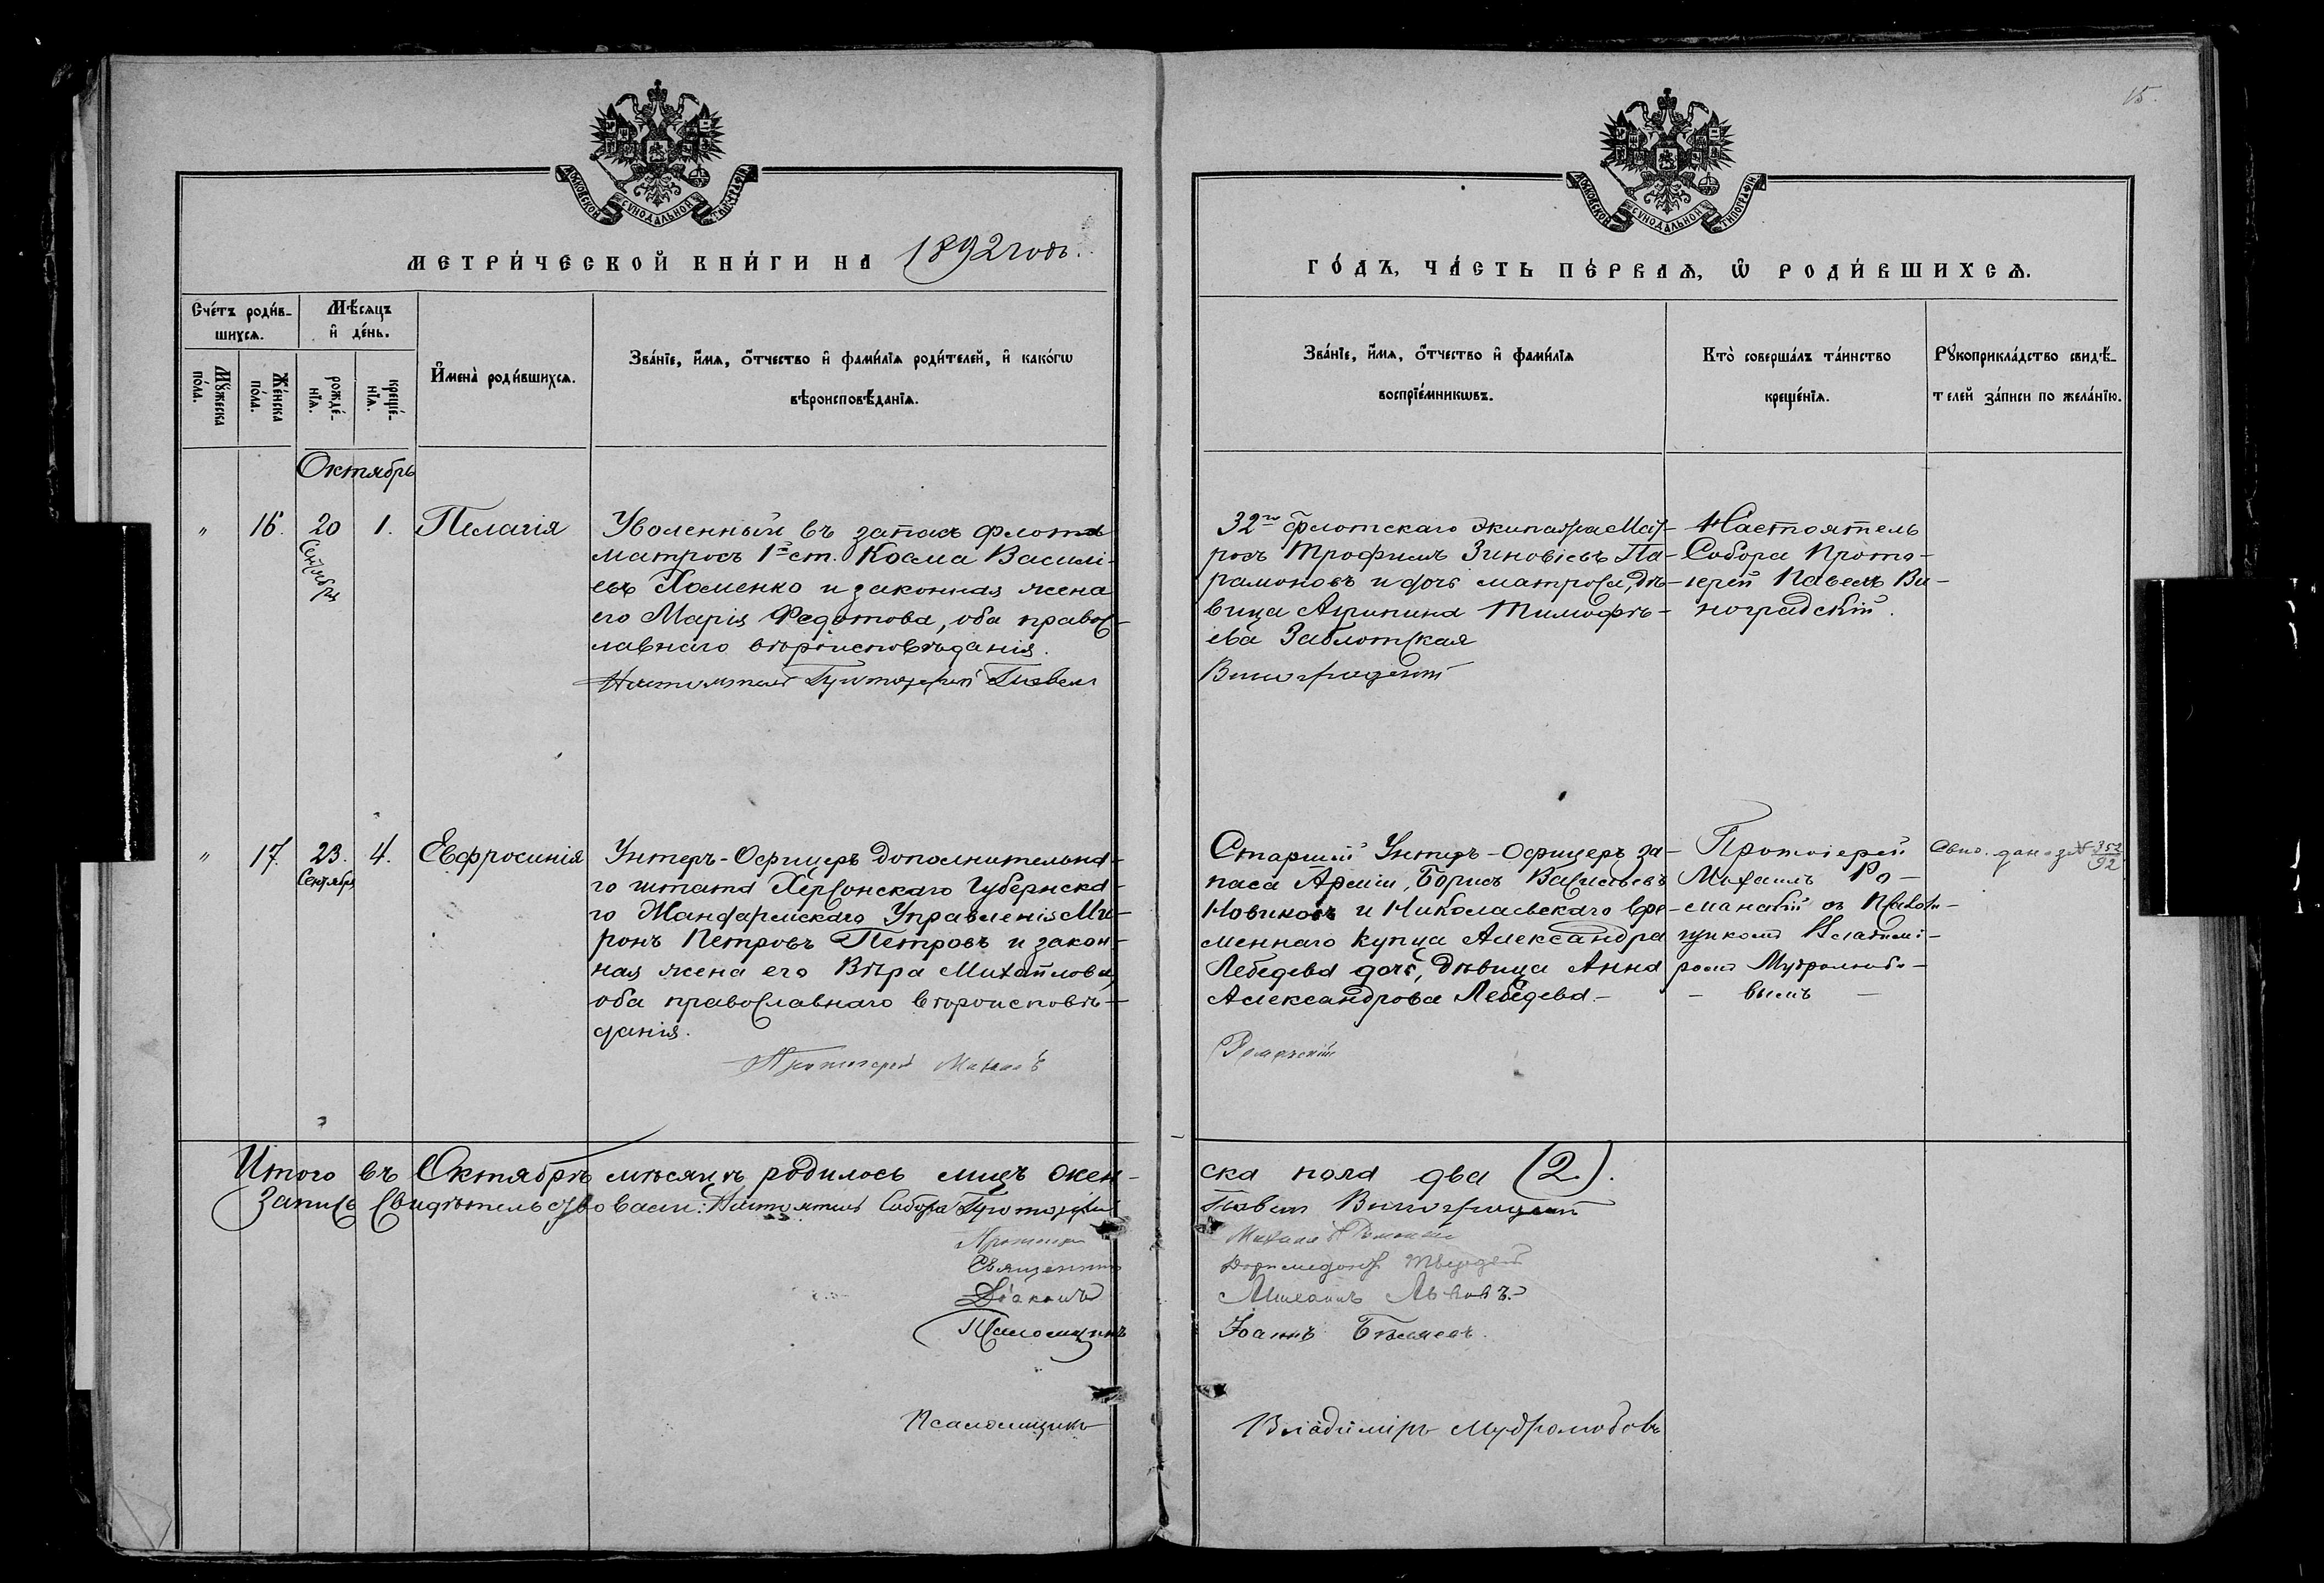 15.
МОСКОВСКОЙ СУНОДАЛЬНОЙ ТИПОГРАФІИ
МОСКОВСКОЙ СУНОДАЛЬНОЙ ТИПОГРАФІИ
МЕТРИ́ЧЕСКОЙ КНИ́ГИ НА 1892 годъ.
ГО́ДЪ, ЧА́СТЬ ПЕ́РВАѦ, Ѿ РОДИ́ВШИХСѦ.
Сче́тъ роди́в-
шихсѧ.
Мꙋ́жеска по́ла.
Же́нска по́ла.
Мѣ́сѧцъ
и де́нь.
рожде́-
нїѧ.
креще́-
нїѧ.
Имена̀ роди́вшихсѧ.
Зва́нїе, и́мѧ, о́тчество и фами́лїѧ роди́телей, и како́гѡ
вѣроисповѣ́данїѧ.
Зва́нїе, и́мѧ, о́тчество и фами́лїѧ
воспрїе́мникѡвъ.
Кто̀ соверша́лъ та́инство
креще́нїѧ.
Рꙋкоприкла́дство свидѣ́-
телей за́писи по жела́нїю.
Октябрь
" 16. 20 1. Пелагія
Сентября
Уволенный въ запасъ флота
матросъ 1й ст. Косма Василі-
евъ Хоменко и законная жена
его Марія Федотова, оба правос-
лавнаго вѣроисповѣданія.
Настоятель Протоіерей Павелъ
32го Флотскаго экипажа Мат-
росъ Трофимъ Зиновіевъ Па-
рамоновъ и дочь матроса, дѣ-
вица Агрипина Тимофѣ-
ева Заблотская
Виноградскій
Настоятель
Собора Прото-
іерей Павелъ Ви-
ноградскій.
" 17. 23. 4. Евфросинія
Сентября
Унтеръ-Офицеръ дополнительна-
го штата Херсонскаго Губернска-
го Жандармскаго Управленія Ми-
ронъ Петровъ Петровъ и закон-
ная жена его Вѣра Михайлова,
оба православнаго вѣроисповѣ-
данія.
Протоіерей Михаилъ
Старшій Унтеръ-Офицеръ за-
паса Арміи, Борисъ Васильевъ
Новиковъ и Николаевскаго вре-
меннаго купца Александра
Лебедева дочь, дѣвица Анна
Александрова Лебедева.-
Романскій
Протоіерей
Михаилъ Ро-
манскій съ Псалом-
щикомъ Владимі-
ромъ Мудролюбо-
- вымъ -
Свид. дан. за № 352/92
Итого въ Октябрѣ мѣсяцѣ родилось лицъ жен-
ска пола два (2).
Запись свидѣтельствовали: Настоятель Собора Протоіерей
Павелъ Виноградскій
Протоіерей
Михаилъ Романскій
Священникъ
Діаконъ
Михаилъ Львовъ.
Псаломщикъ
Іоаннъ Бѣляевъ.
Псаломщикъ
Владиміръ Мудролюбовъ